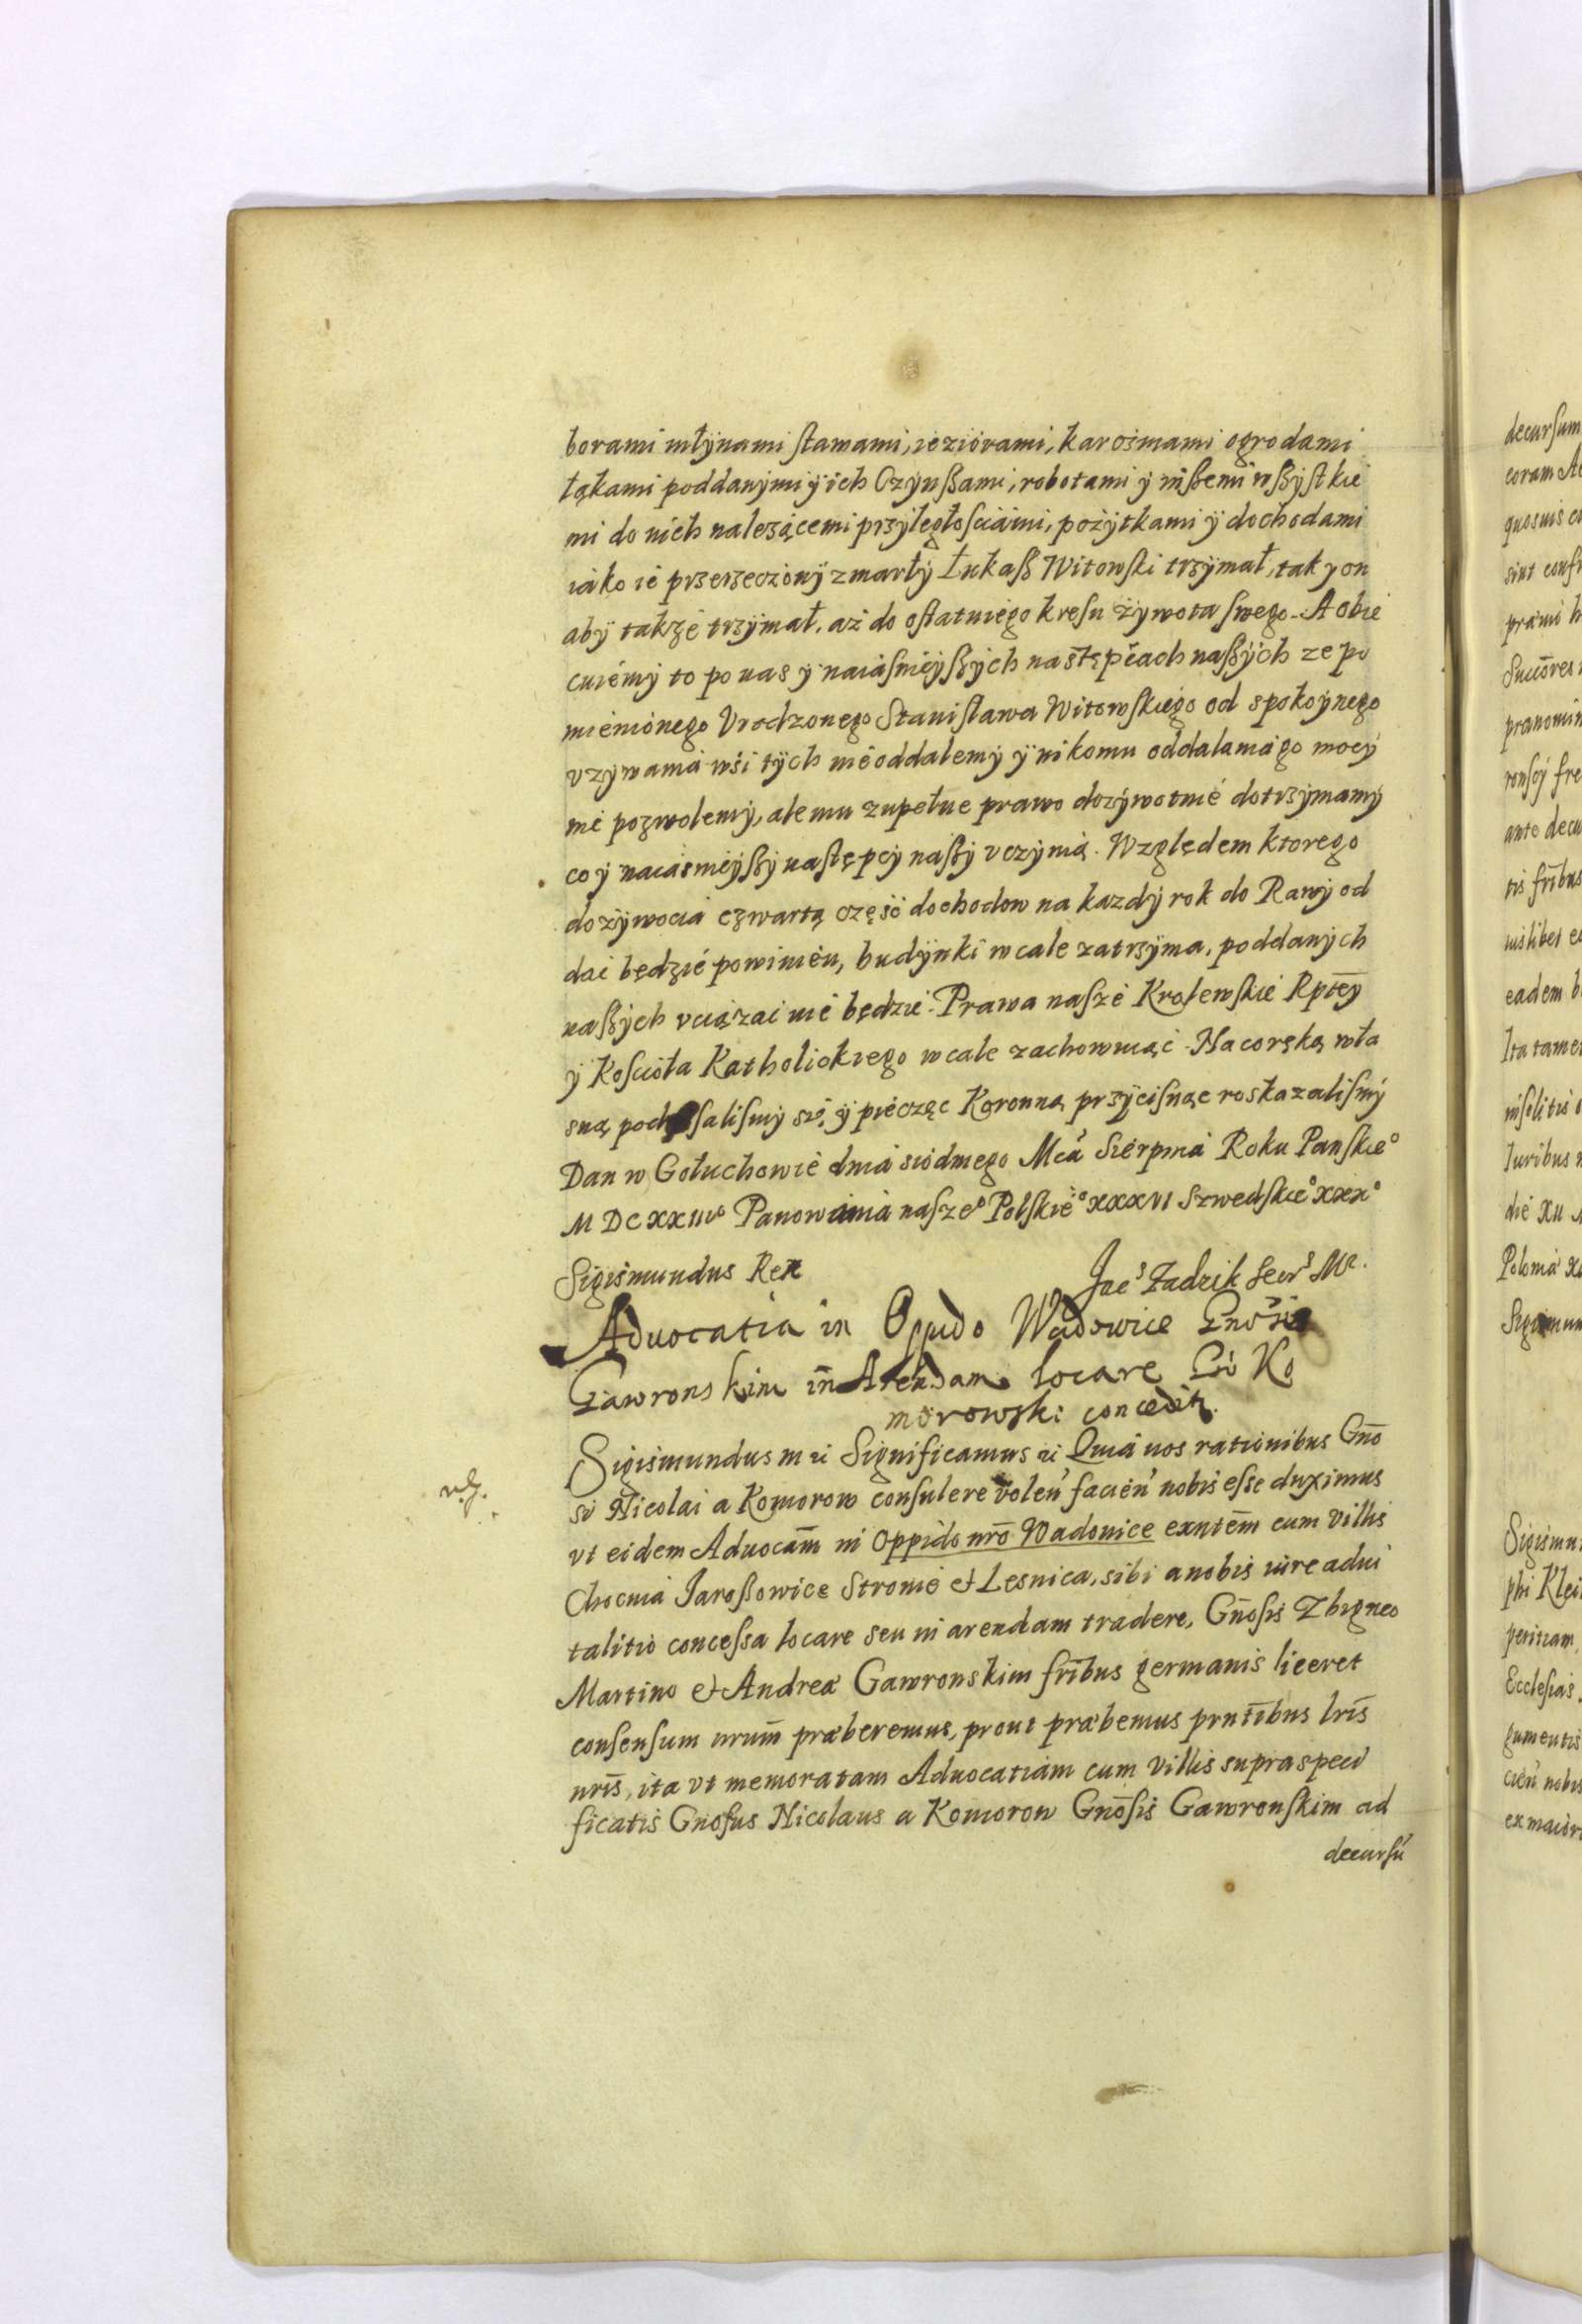 borami młÿnami stawami, ieziorami, karczmami ogrodami
łąkami poddanymi ÿ ich Czynßami, robotami ÿ inßemi wßÿstkie
mi do nich należącemi przÿległościami, pożÿtkami ÿ dochodami
iako ie przerzeczonÿ zmarłÿ Łukaß Witowski trzÿmał, tak y on
abÿ także trzÿmał, aż do ostatniego kresu żÿwota swego. A obie
cuiemÿ to po nas ÿ naiaśnieÿßÿch nastęṗcach naßÿch ze po
mienionego Vrodzonego Stanisława Witowskiego od spokoÿnego
vzÿwania wsi tÿch nie oddalemÿ ÿ nikomu oddalania go mocÿ
nie pozwolemÿ, ale mu zupełne prawo dożÿwotnie dotrzÿmamÿ
co ÿ naiaśnieÿßÿ następcÿ naßÿ vczÿnią. Względem ktorego
dożÿwocia czwartą część dochodow na każdÿ rok do Rawÿ od
dać będzie powinien, budÿnki wcale zatrzÿma, poddanÿch
naßÿch vciążać nie będzie. Prawa nasze Krolewskie Rptēÿ
ÿ Kościoła Katholickiego wcale zachowuiąc. Na co ręką wła
sną podpisaliśmÿ się, ÿ pieczęc Koronną przÿcisnąc roskazaliśmÿ
Dan w Gołuchowie dnia siodmego Mcá Sierpnia Roku Panskie°
M DC XXIII° Panowania nasze° Polskie° XXXVI Szwedskie° XXX°
Sigismundus Rex Jac˜ Zadzik Secr˜ Mr.
Aduocatia in Oppido Wadowice Gnosis
Gawronskim in Arendam locare Gso Ko
morowski conceditr.
Sigismundus m ri Significamus ri Quia nos rationibus Gn̄o
si Nicolai a Komorow consulere volen̄ facien̄ nobis esse duximus
vt eidem Aduocām in oppido nrō Wadouice exntēm cum villis
Chocnia Jaroßowice Stronie et Lesnica, sibi a nobis iure adui
talitio concessa locare seu in arendam tradere, Gn̄osis Zbigneo
Martino et Andreæ Gawronskim frībus germanis liceret
consensum nrum̄ præberemus, prout præbemus prntībus lrīs
nrīs, ita vt memoratam Aduocatiam cum villis supraspeci
ficatis Gnosus Nicolaus a Komorow Gn̄osis Gawronskim ad
decursū
decursum
coram Ac
quosuis co
Ita tamen
die XII
Sigismun
phi Klei
peritiam,
Ecclesias
gumentis
cien̄ nobis
ex maiori